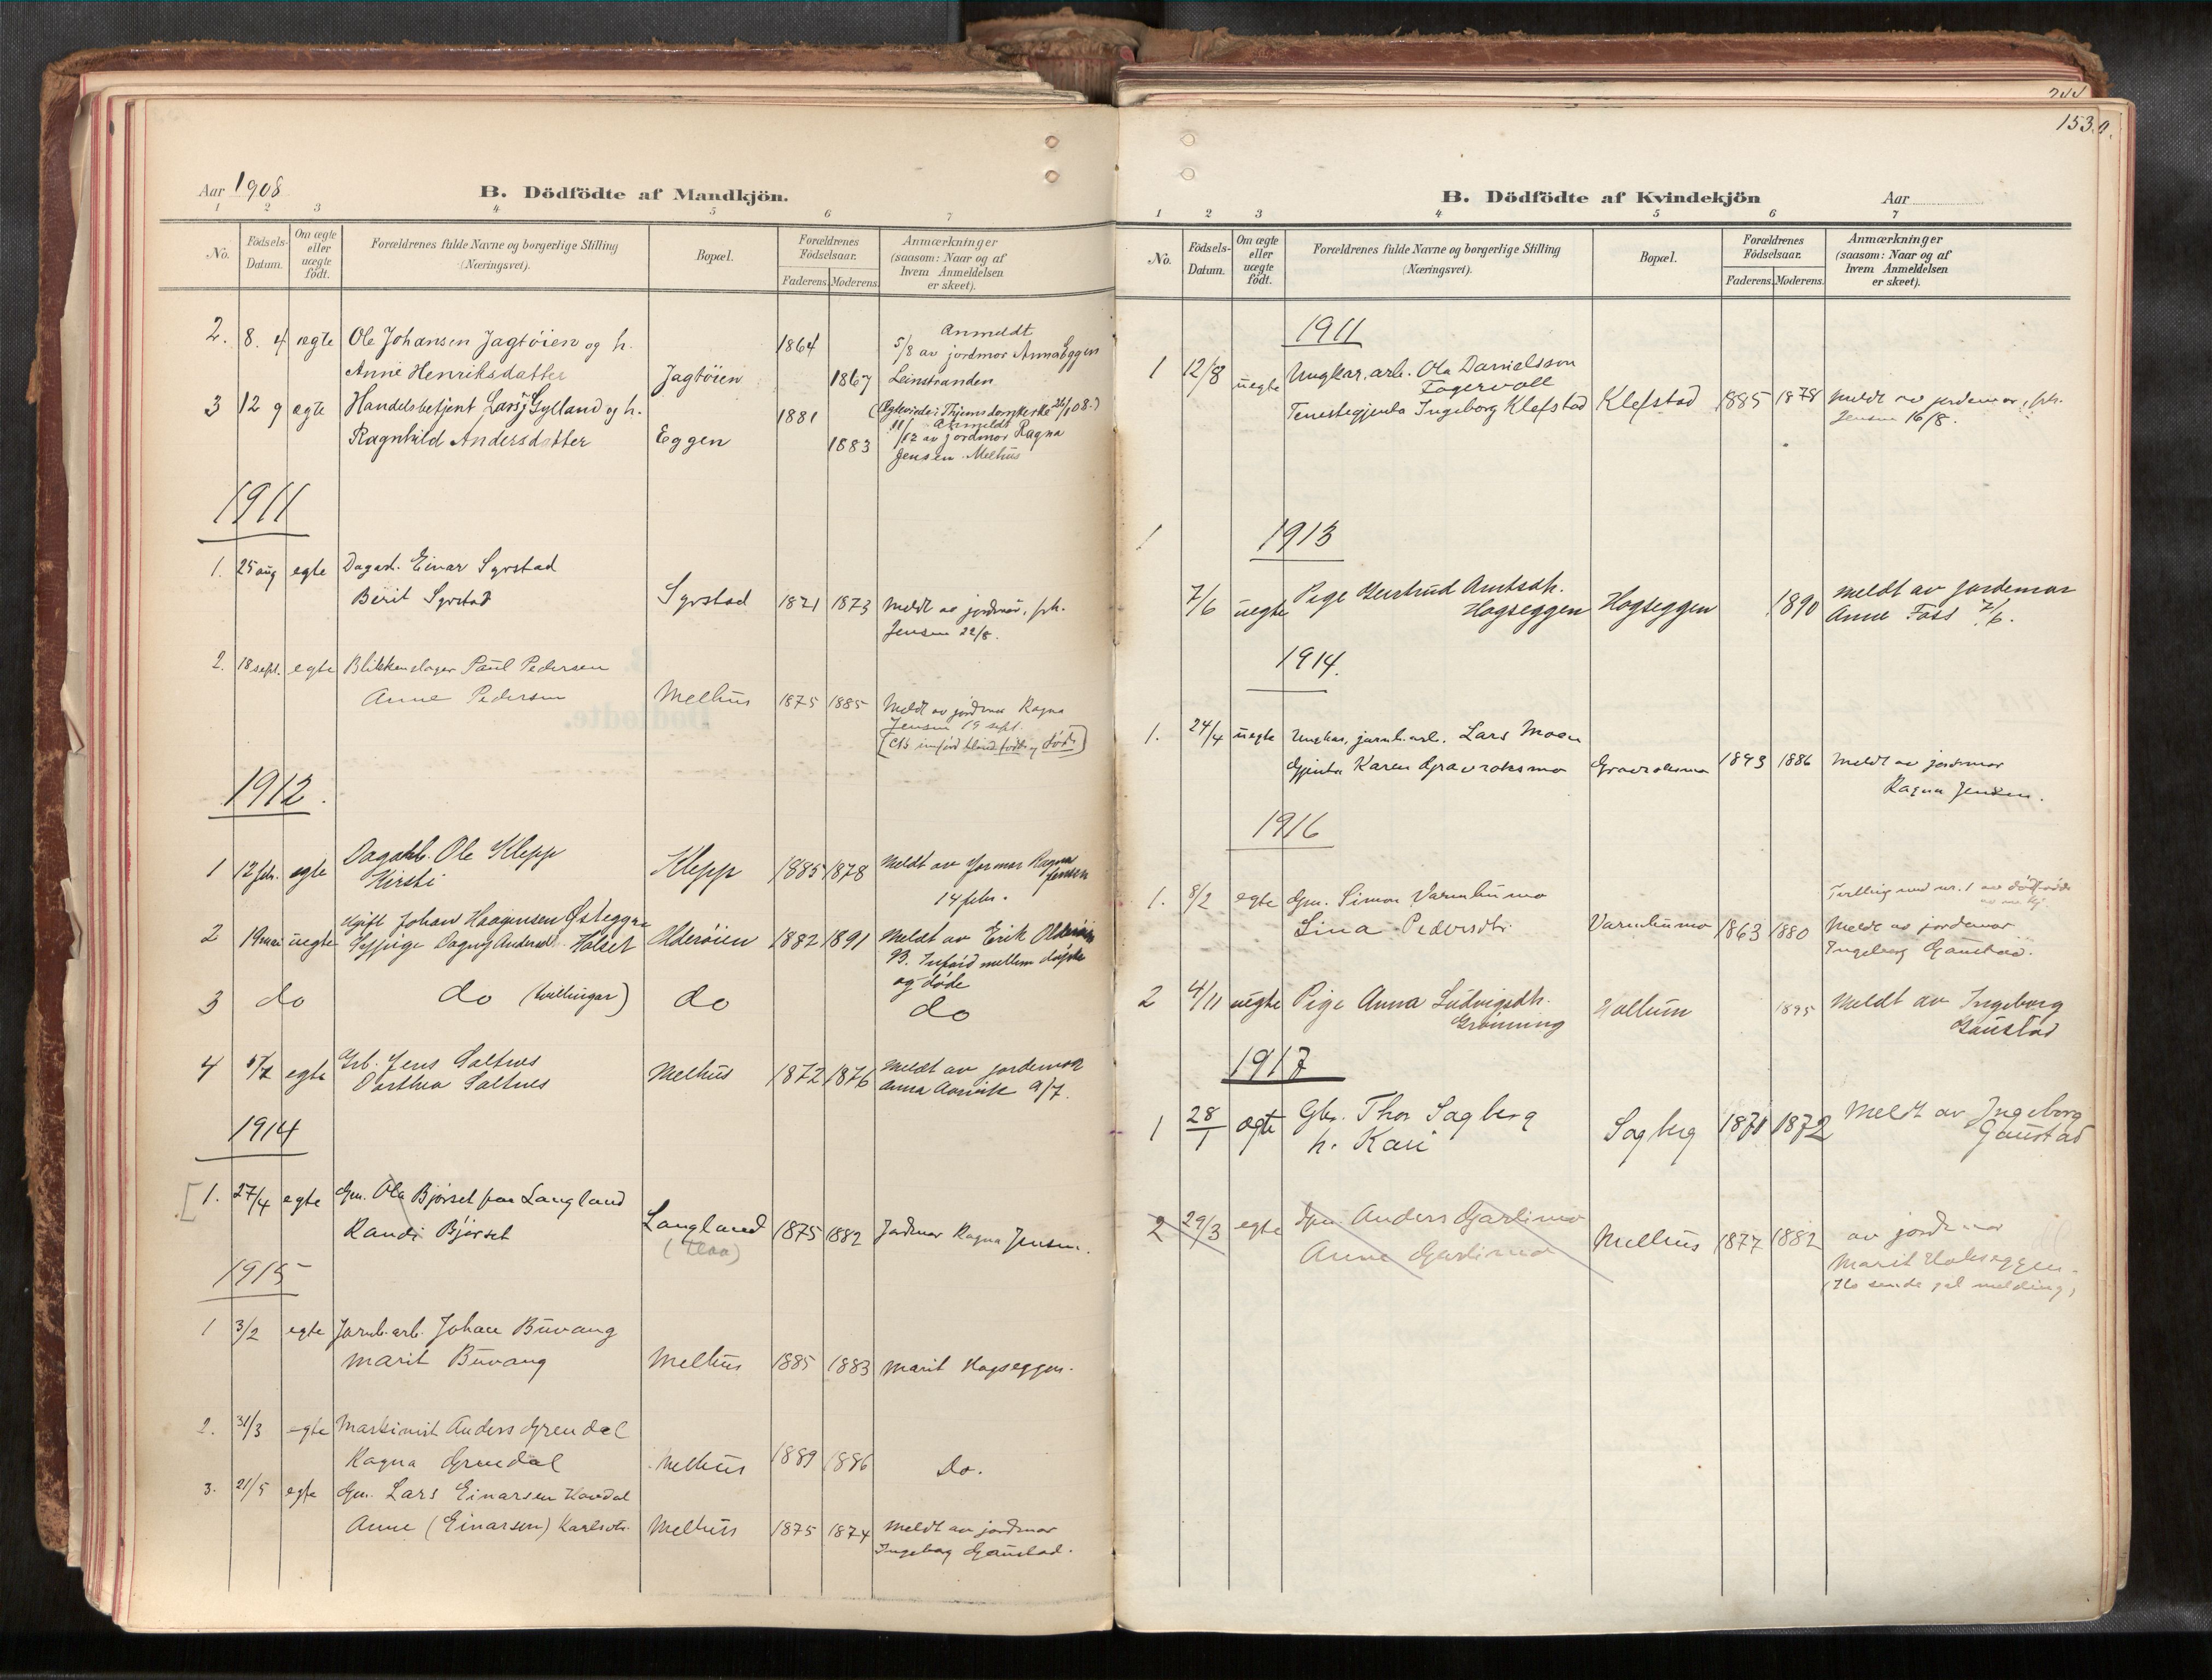 244
153.a.
Aar 1908
B. Dödfödte af Mandkjön.
1 2 3 4 5 6 7
No. Födsels-Datum. Om ægte eller uægte födt. Forældrenes fulde Navne og borgerlige Stilling (Næringsvei). Bopæl. Forældrenes Födselsaar. Faderens. Moderens. Anmærkninger (saasom: Naar og af hvem Anmeldelsen er skeet).
2. 8. 4 ægte Ole Johansen Jagtöien og h. 1864 Anmeldt 5/8 av jordmor Anna Eggen
Anne Henriksdatter Jagtöien 1867 Leinstranden
3 12 9 ægte Handelsbetjent Lars J Gylland og h. 1881
Ragnhild Andersdatter Eggen 1883 11/12 Anmeldt av jordmor Ragna
Jensen Melhus
1911
1. 25 aug egte Dagarb. Einar Syrstad
Berit Syrstad Syrstad 1871 1873 Meldt av jordmor, frk.
Jensen 22/8.
2. 18 sept. egte Blikkenslager Paul Pedersen
Anne Pedersen Melhus 1875 1885 Meldt av jordmor Ragna
Jensen 19 sept.
1912.
1 12 feb. egte Dagarb. Ole Klepp
Kirsti Klepp 1885 1878 Meldt av jormor Ragna Jensen
14 febr.
2 19 mai uegte Kgift Johan Haagensen Østeggen
Dagny Andersdt. Holset Olderöien 1882 1891 Meldt av Erik Olderöien
Införd mellem döpte
og döde
3 do do (tvillingar) do do
4 5/7 egte Grb. Jens Saltnes
Dorthea Saltnes Melhus 1872 1876 Meldt av jordemor
Anna 9/7.
1914
[1. 27/4 egte Gm. Ola Björset paa Langland
Randi Björset Langland 1875 1882 Jordmor Ragna Jensen.
(Flaa)
1915
1 3/2 egte Jarnb.arb. Johan Buvang
Marit Buvang Melhus 1885 1883 Marit Hogseggen.
2. 31/3 egte Maskinist Anders Grendal
Ragna Grendal Melhus 1889 1886 Do.
3. 21/5 egte Gm. Lars Einarsen Hovdal
Anne (Einarsen) Karlsdtr. Melhus 1875 1874 Meldt av jordmor
Ingeborg Gaustad.
B. Dödfödte af Kvindekjön
Aar
1 2 3 4 5 6 7
No. Födsels-Datum. Om ægte eller uægte födt. Forældrenes fulde Navne og borgerlige Stilling (Næringsvei). Bopæl. Forældrenes Födselsaar. Faderens. Moderens. Anmærkninger (saasom: Naar og af hvem Anmeldelsen er skeet).
1911
1 12/8 uegte Ungkar, arb. Ola Danielsson
Fagervoll
Tenestegjenta Ingeborg Klefstad Klefstad 1885 1878 Meldt av jordemor, frk.
Jensen 16/8.
1
1913
7/6 uegte Pige Gjertrud Amtsdt.
Hogseggen Hogseggen 1890 Meldt av jordemor
Anne Foss 7/6.
1914.
1. 24/4 uegte Ungkar, jarnb.arb. Lars Moen
Gjenta Karen Gravraksmo Gravraksmo 1893 1886 Meldt av jordmor
Ragna Jensen.
1916
1. 8/2 egte Gm. Simon Varmbumo Tvilling med nr. 1 av dödfödde
av m.kj.
Lina Pedersdtr. Varmbumo 1863 1880 Meldt av jordemor
Ingeborg Gaustad.
2 4/11 uegte Pige Anna Ludvigsdt.
Grönning Hollum 1895 Meldt av Ingeborg
Gaustad
1917
1 28/1 egte Gbr. Thor Sagberg
h. Kari Sagberg 1871 1872 Meldt av Ingeborg
Gaustad
2 29/3 egte Gm. Anders Garlimo
Anne Garlimo Melhus 1877 1882 av jordmor
Marit Hokseggen.
(Ho sende gal melding)